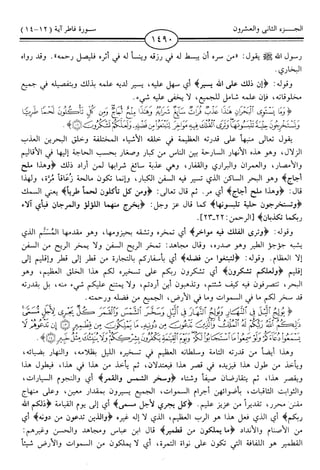 الجـــزء الثاني والعشرون
١٤٩٠
سورة فاطر آية (١٢-١٤)
رسول الله ﷺ يقول: «من سره أن يبسط له في رزقه وينسأ له في أثره فليصل رحمه». وقد رواه
البخاري.
وقوله: ﴿إن ذلك على الله يسير﴾ أي سهل عليه، يسير لديه علمه بذلك وبتفصيله في جميع
مخلوقاته، فإن علمه شامل للجميع، لا يخفى عليه شيء.
وَمَا يَسْتَوِي الْبَحْرَانِ هَٰذَا عَذْبٌ فُرَاتٌ سَائِغٌ شَرَابُهُ وَهَٰذَا مِلْحٌ أُجَاجٌ وَمِن كُلٍّ تَأْكُلُونَ لَحْمًا طَرِيًّا
وَتَسْتَخْرِجُونَ حِلْيَةً تَلْبَسُونَهَا وَتَرَى الْفُلْكَ فِيهِ مَوَاخِرَ لِتَبْتَغُوا مِن فَضْلِهِ وَلَعَلَّكُمْ تَشْكُرُونَ
يقول تعالى منبهاً على قدرته العظيمة في خلقه الأشياء المختلفة وخلق البحرين العذب
الزلال، وهو هذه الأنهار السارحة بين الناس من كبار وصغار بحسب الحاجة إليها في الأقاليم
والأمصار، والعمران والبراري والقفار، وهي عذبة سائغ شرابها لمن أراد ذلك ﴿وهذا ملح
أجاج﴾ وهو البحر الساكن الذي تسير فيه السفن الكبار، وإنما تكون مالحة زعاقاً مُرّة، ولهذا
قال: ﴿وهذا ملح أجاج﴾ أي مر. ثم قال تعالى: ﴿ومن كل تأكلون لحماً طرياً﴾ يعني السمك
﴿وتستخرجون حلية تلبسونها﴾ كما قال عز وجل: ﴿يخرج منهما اللؤلؤ والمرجان فبأي آلاء
ربكما تكذبان﴾ [الرحمن: ٢٢-٢٣].
وقوله: ﴿وترى الفلك فيه مواخر﴾ أي تمخره وتشقه بحيزومها، وهو مقدمها المُسَنَّم الذي
يشبه جؤجؤ الطير وهو صدره، وقال مجاهد: تمخر الريح السفن ولا يمخر الريح من السفن
إلا العظام. وقوله: ﴿لتبتغوا من فضله﴾ أي بأسفاركم بالتجارة من قطر إلى قطر وإقليم إلى
إقليم ﴿ولعلكم تشكرون﴾ أي تشكرون ربكم على تسخيره لكم هذا الخلق العظيم، وهو
البحر، تتصرفون فيه كيف شئتم، وتذهبون أين أردتم، ولا يمتنع عليكم شيء منه، بل بقدرته
قد سخر لكم ما في السموات وما في الأرض، الجميع من فضله ورحمته.
يُولِجُ اللَّيْلَ فِي النَّهَارِ وَيُولِجُ النَّهَارَ فِي اللَّيْلِ وَسَخَّرَ الشَّمْسَ وَالْقَمَرَ كُلٌّ يَجْرِي لِأَجَلٍ مُّسَمًّى
ذَٰلِكُمُ اللَّهُ رَبُّكُمْ لَهُ الْمُلْكُ وَالَّذِينَ تَدْعُونَ مِن دُونِهِ مَا يَمْلِكُونَ مِن قِطْمِيرٍ إِن تَدْعُوهُمْ لَا
يَسْمَعُوا دُعَاءَكُمْ وَلَوْ سَمِعُوا مَا اسْتَجَابُوا لَكُمْ وَيَوْمَ الْقِيَامَةِ يَكْفُرُونَ بِشِرْكِكُمْ وَلَا يُنَبِّئُكَ مِثْلُ خَبِيرٍ
وهذا أيضاً من قدرته التامة وسلطانه العظيم في تسخيره الليل بظلامه، والنهار بضيائه،
ويأخذ من طول هذا فيزيده في قصر هذا فيعتدلان، ثم يأخذ من هذا في هذا، فيطول هذا
ويقصر هذا، ثم يتقارضان صيفاً وشتاء ﴿وسخر الشمس والقمر﴾ أي والنجوم السيارات،
والثوابت الثاقبات، بأضوائهن أجرام السموات، الجميع يسيرون بمقدار معين، وعلى منهاج
مقنن محرر، تقديراً من عزيز عليم. ﴿كل يجري لأجل مسمى﴾ أي إلى يوم القيامة ﴿ذلكم الله
ربكم﴾ أي الذي فعل هذا هو الرب العظيم، الذي لا إله غيره ﴿والذين تدعون من دونه﴾ أي
من الأصنام والأنداد ﴿ما يملكون من قطمير﴾ قال ابن عباس ومجاهد والحسن وغيرهم:
القطمير هو اللفافة التي تكون على نواة التمرة، أي لا يملكون من السموات والأرض شيئاً